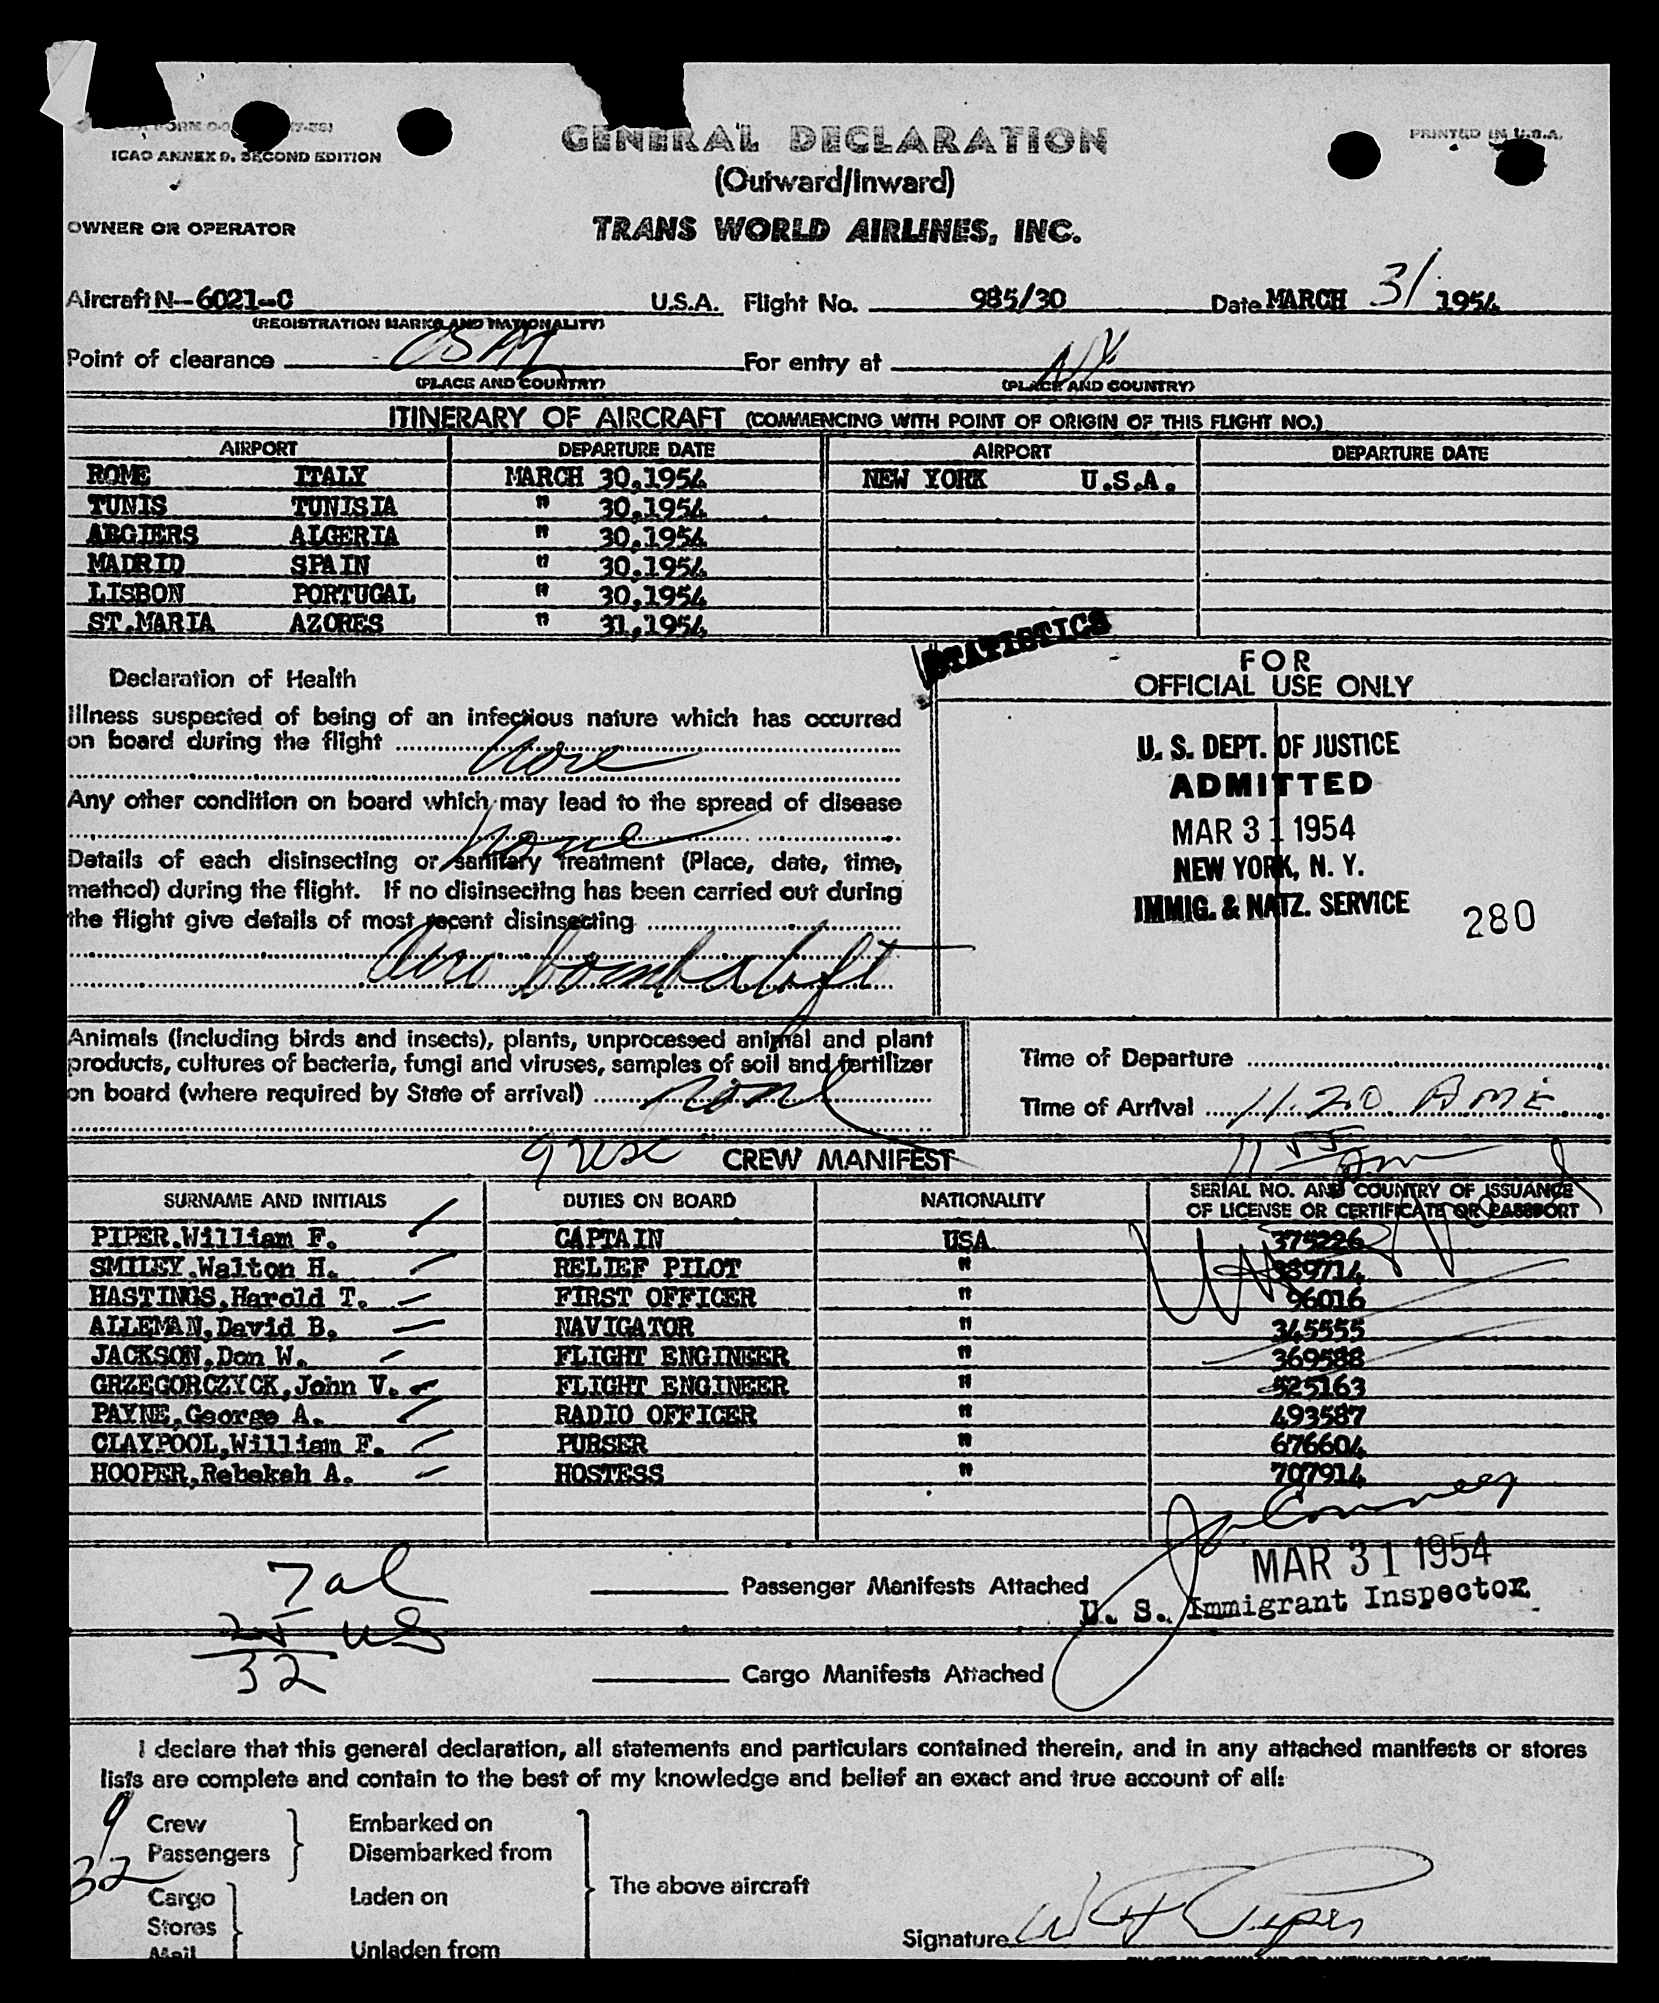 ICAO ANNEX 9, SECOND EDITION
PRINTED IN U.S.A.
GENERAL DECLARATION
(Outward/Inward)
OWNER OR OPERATOR TRANS WORLD AIRLINES, INC.
Aircraft N-6021-C U.S.A. Flight No. 985/30 Date MARCH 31 1954
(REGISTRATION MARKS AND NATIONALITY)
Point of clearance For entry at NY
(PLACE AND COUNTRY) (PLACE AND COUNTRY)
ITINERARY OF AIRCRAFT (COMMENCING WITH POINT OF ORIGIN OF THIS FLIGHT NO.)
AIRPORT DEPARTURE DATE AIRPORT DEPARTURE DATE
ROME ITALY MARCH 30,1954 NEW YORK U.S.A.
TUNIS TUNISIA " 30,1954
ALGIERS ALGERIA " 30,1954
MADRID SPAIN " 30,1954
LISBON PORTUGAL " 30,1954
ST.MARIA AZORES " 31,1954
STATISTICS
Declaration of Health
Illness suspected of being of an infectious nature which has occurred
on board during the flight none
Any other condition on board which may lead to the spread of disease
none
Details of each disinsecting or sanitary treatment (Place, date, time,
method) during the flight. If no disinsecting has been carried out during
the flight give details of most recent disinsecting
Aero bomb
FOR
OFFICIAL USE ONLY
U. S. DEPT. OF JUSTICE
ADMITTED
MAR 31 1954
NEW YORK, N. Y.
IMMIG. & NATZ. SERVICE
280
Animals (including birds and insects), plants, unprocessed animal and plant
products, cultures of bacteria, fungi and viruses, samples of soil and fertilizer
on board (where required by State of arrival) none
Time of Departure
Time of Arrival 11.20 AM
9 usc CREW MANIFEST
SURNAME AND INITIALS DUTIES ON BOARD NATIONALITY SERIAL NO. AND COUNTRY OF ISSUANCE
OF LICENSE OR CERTIFICATE OR PASSPORT
PIPER,William F. CAPTAIN USA 375226
SMILEY,Walton H. RELIEF PILOT " 989714
HASTINGS,Harold T. FIRST OFFICER " 96016
ALLEMAN,David B. NAVIGATOR " 345555
JACKSON,Don W. FLIGHT ENGINEER " 369588
GRZEGORCZYCK,John V. FLIGHT ENGINEER " 525163
PAYNE,George A. RADIO OFFICER " 493587
CLAYPOOL,William F. PURSER " 676604
HOOPER,Rebekah A. HOSTESS " 707914
7 al
25 US
32
Passenger Manifests Attached
MAR 31 1954
U. S. Immigrant Inspector
Cargo Manifests Attached
I declare that this general declaration, all statements and particulars contained therein, and in any attached manifests or stores
lists are complete and contain to the best of my knowledge and belief an exact and true account of all:
9 Crew Embarked on
32 Passengers Disembarked from
Cargo Laden on
Stores
Mail Unladen from
The above aircraft
Signature W F Piper